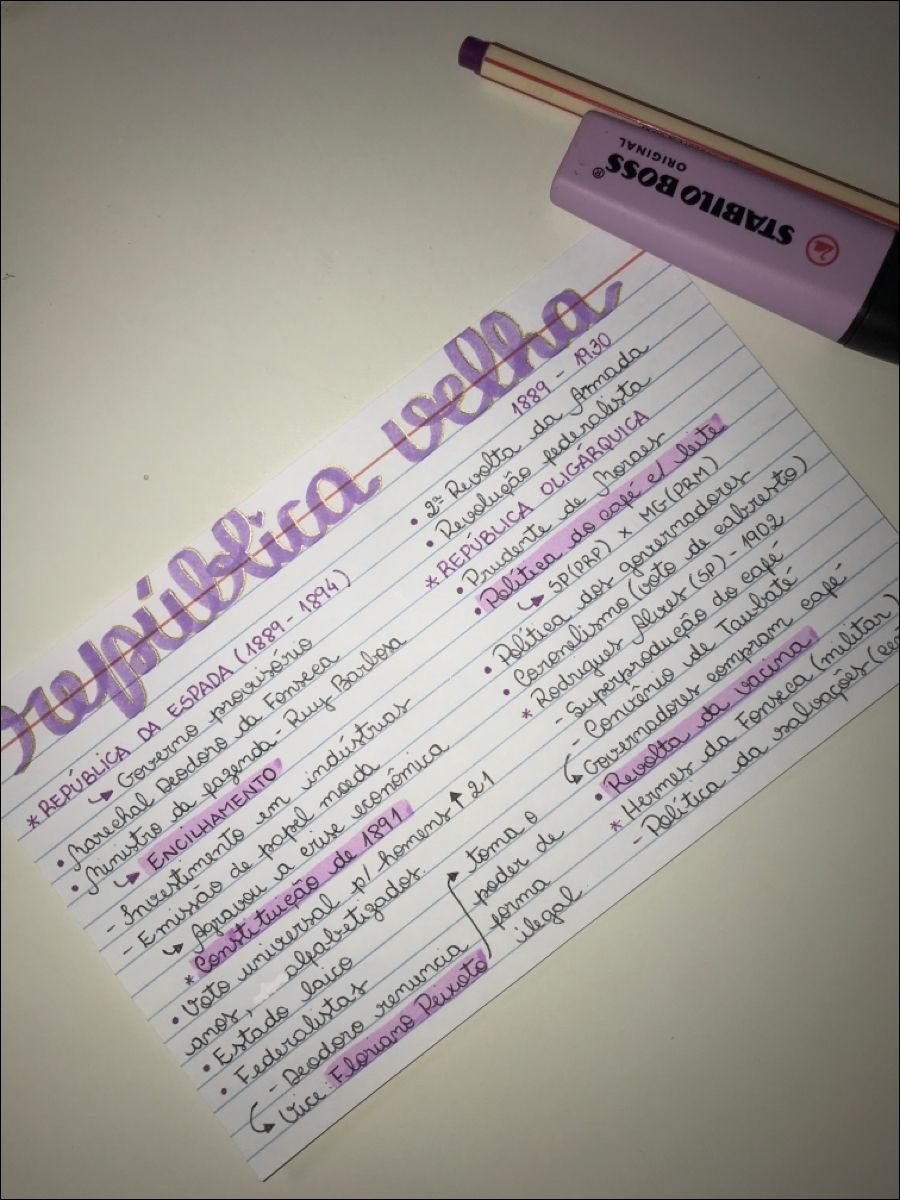 STABILO BOSS®
ORIGINAL
república velha
1889 - 1930
* REPÚBLICA DA ESPADA (1889 - 1894)
↳ Governo provisório
• Marechal Deodoro da Fonseca
• Ministro da fazenda - Ruy Barbosa
↳ ENCILHAMENTO
- Investimento em indústrias
- Emissão de papel moeda
↳ Agravou a crise econômica
* Constituição de 1891
• Voto universal p/ homens ↑ 21
anos, alfabetizados.
• Estado laico
• Federalistas
- Deodoro renuncia
↳ Vice: Floriano Peixoto
→ toma o
poder de
forma
ilegal
• 2ª Revolta da Armada
• Revolução federalista
* REPÚBLICA OLIGÁRQUICA
• Prudente de Moraes
• Política do café c/ leite
↳ SP(PRP) x MG(PRM)
• Política dos governadores
• Coronelismo (voto de cabresto)
* Rodrigues Alves (SP) - 1902
- Superprodução do café
- Convênio de Taubaté
↳ Governadores compram café
• Revolta da vacina
* Hermes da Fonseca (militar)
- Política da salvações